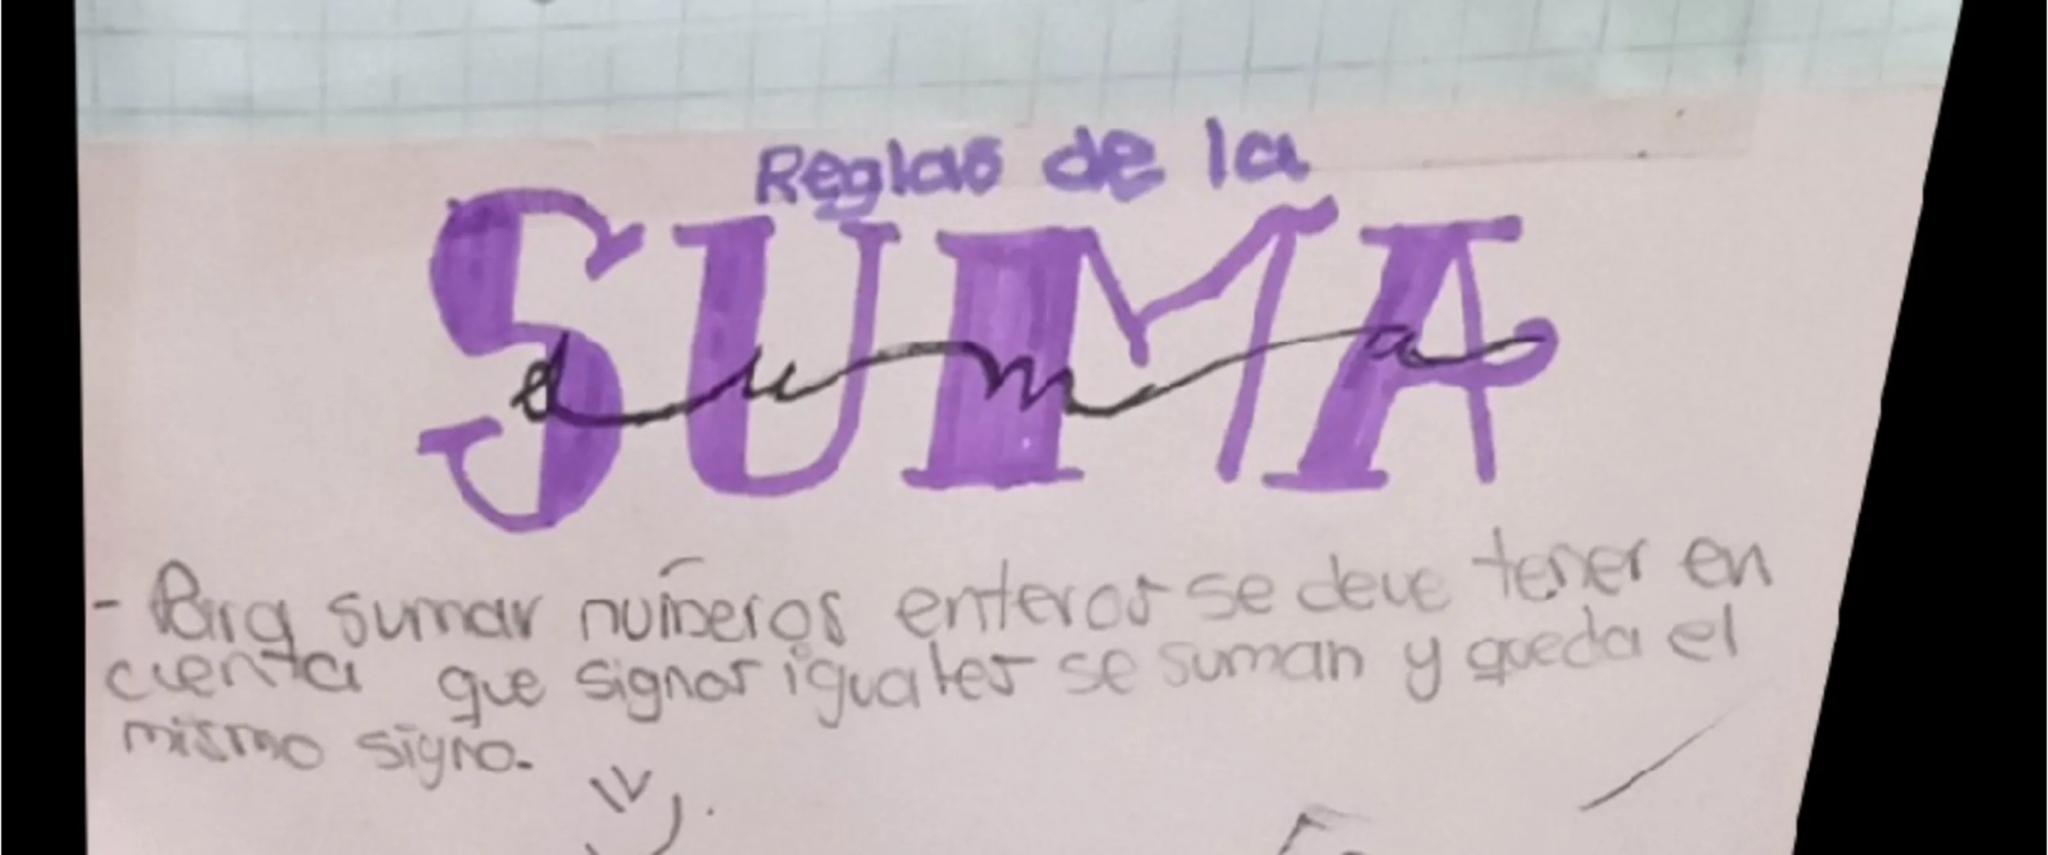 Reglas de la
SUMA
suma
- Para sumar números enteros se deve tener en
cuenta que signos iguales se suman y queda el
mismo signo.